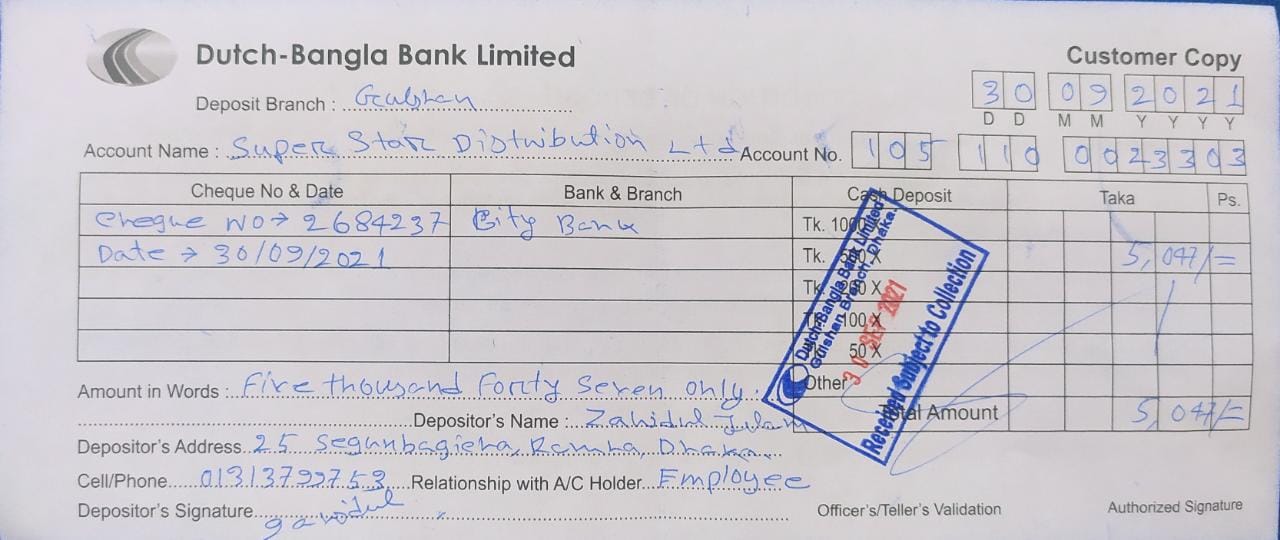 Dutch-Bangla Bank Limited
Customer Copy
Deposit Branch : Gulshan
30 09 2021
D D M M Y Y Y Y
Account Name : Super Star Distribution Ltd Account No. 105 110 0023303
Cheque No & Date Bank & Branch Cash Deposit Taka Ps.
Cheque NO → 2684237 City Bank Tk. 1000 X
Date → 30/09/2021 Tk. 500 X 5,047/=
Tk. 200 X
Tk. 100 X
Tk. 50 X
Other
Dutch-Bangla Bank Limited
Gulshan Branch, Dhaka.
30 SEP 2021
Received Subject to Collection
Amount in Words : Five thousand Forty Seven only.
Total Amount 5,047/=
Depositor's Name : Zahidul Islam
Depositor's Address 25 Segunbagicha, Ramna, Dhaka.
Cell/Phone 01313799753 Relationship with A/C Holder Employee
Depositor's Signature Officer's/Teller's Validation Authorized Signature